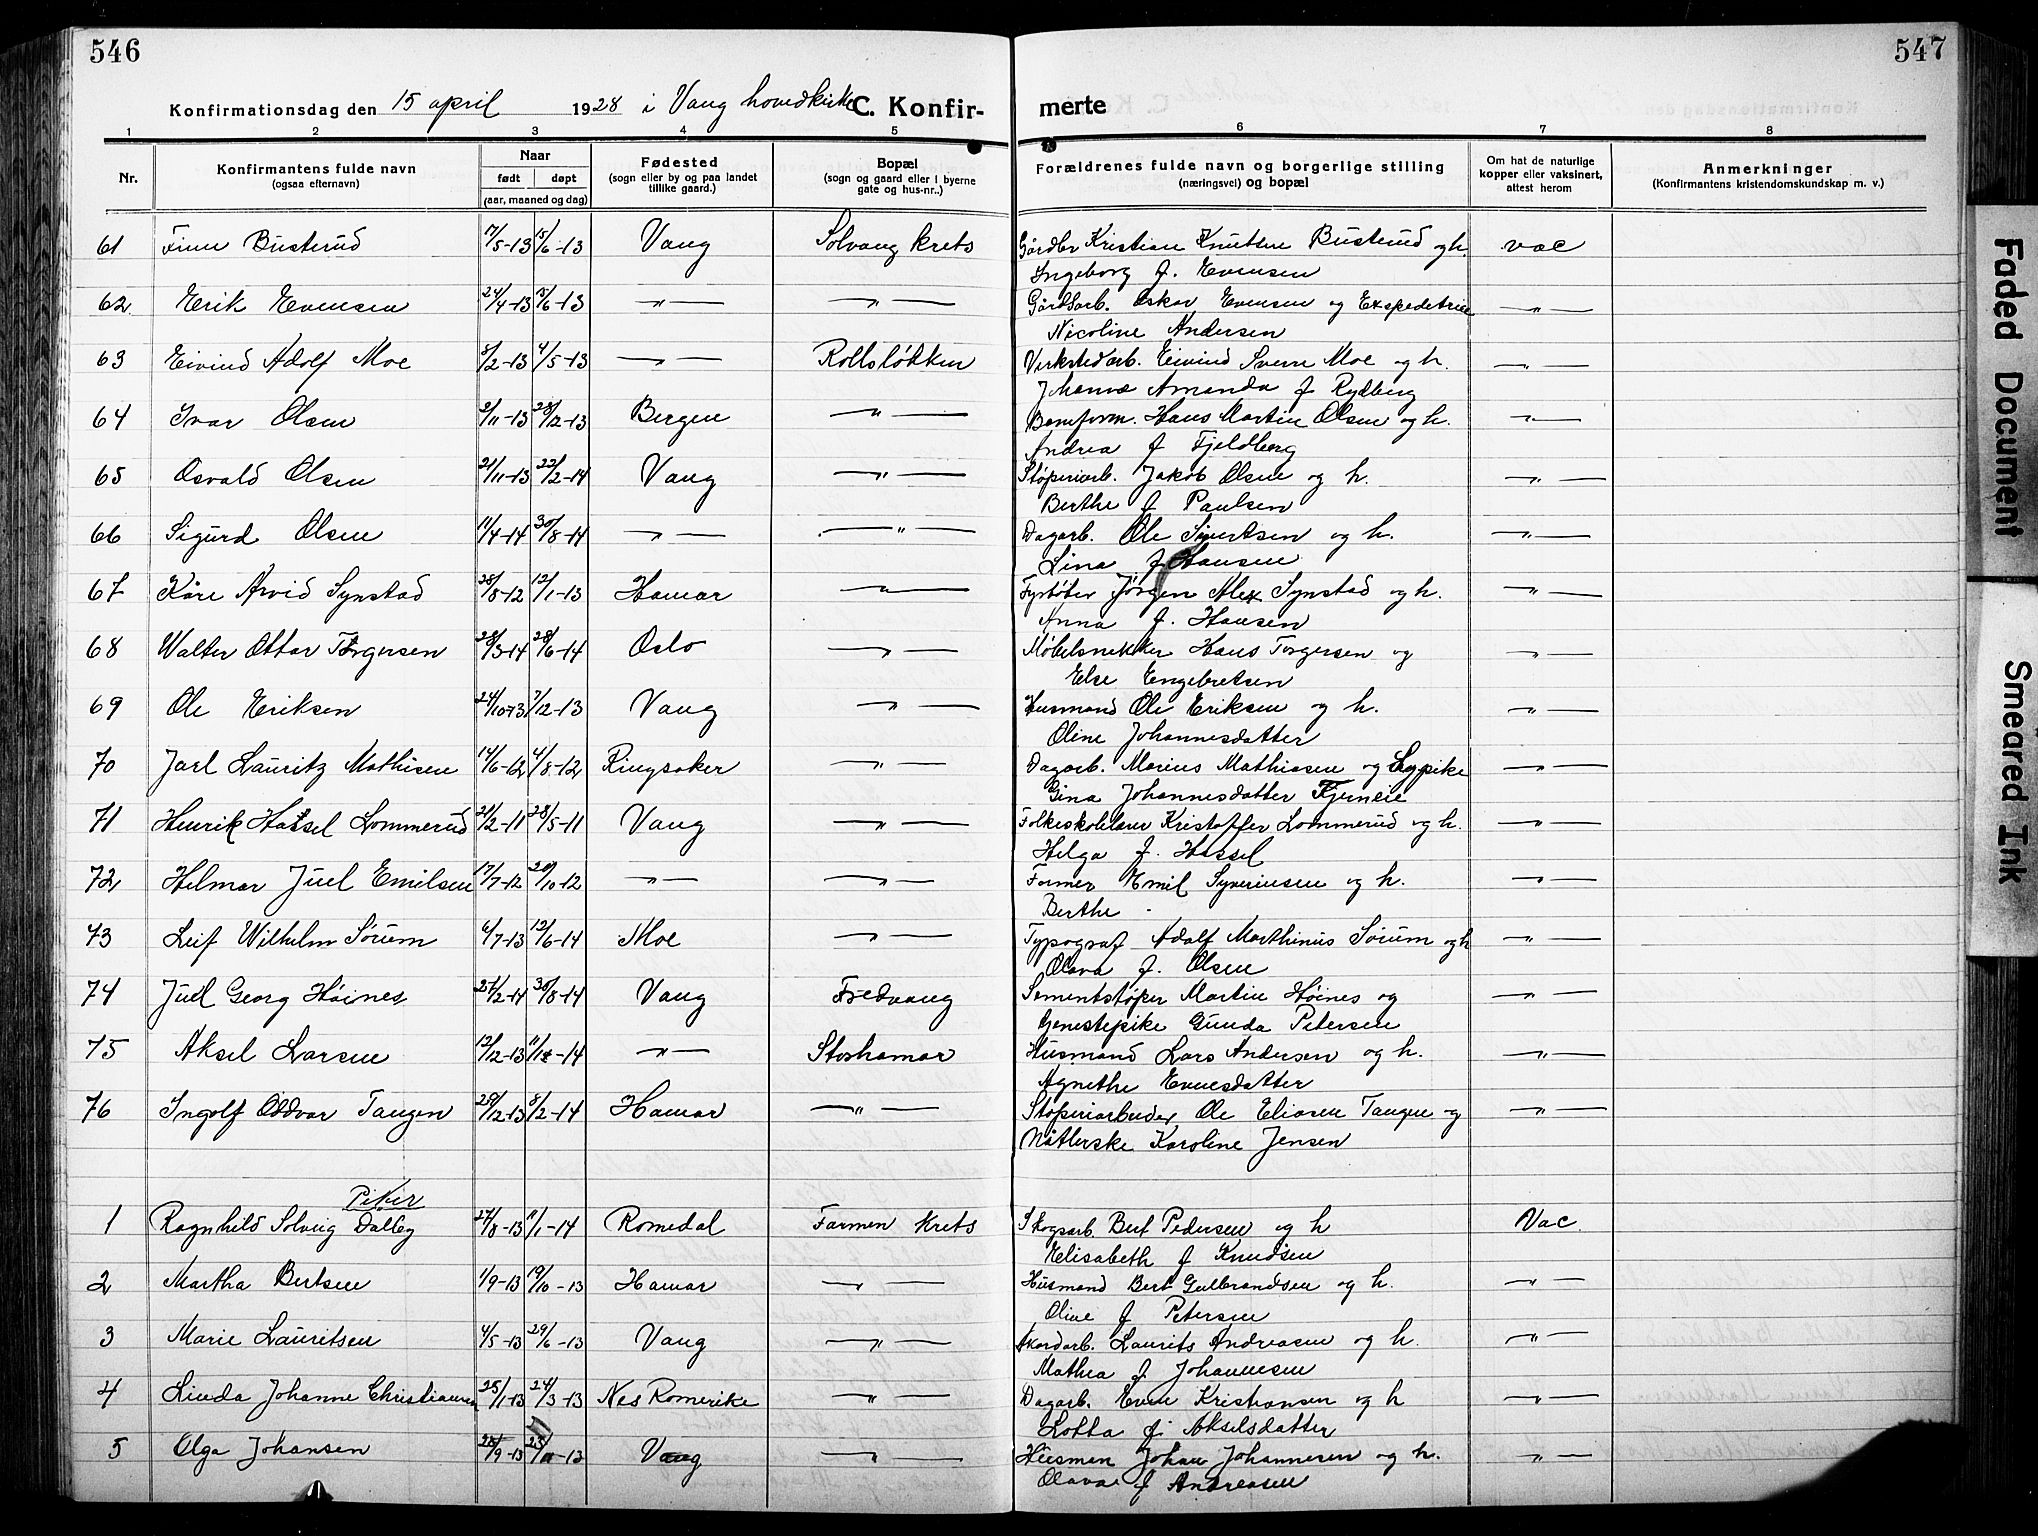 546
547
Konfirmationsdag den 15 april 1928 i Vang hovedkirke C. Konfir-
merte
1 2 3 4 5 6 7 8
Nr.
Konfirmantens fulde navn
(ogsaa efternavn)
Naar
født
døpt
(aar, maaned og dag)
Fødested
(sogn eller by og paa landet
tillike gaard.)
Bopæl
(sogn og gaard eller i byerne
gate og hus-nr.,)
Forældrenes fulde navn og borgerlige stilling
(næringsvei) og bopæl
Om hat de naturlige
kopper eller vaksinert,
attest herom
Anmerkninger
(Konfirmantens kristendomskundskap m. v.)
61 Finn Busterud 17/5-13 15/6-13 Vang Solvang krets Gårdbr Kristian Knutsen Busterud og h. vac
Ingeborg f. Evensen
62 Erik Evensen 24/4-13 15/6-13 " " Gårdsarb. Oskar Evensen og Expedetrise "
Nicoline Andersen
63 Eivind Adolf Moe 8/2-13 4/5-13 " Rollsløkken Verkstedarb. Eivind Svern Moe og h. "
Johanna Amanda f Rydberg
64 Ivar Olsen 2/11-13 28/12-13 Bergen " Banform. Hans Martin Olsen og h. "
Andrea f Fjeldberg
65 Osvald Olsen 21/11-13 22/2-14 Vang " Støperiarb. Jakob Olsen og h. "
Berthe f Paulsen
66 Sigurd Olsen 11/4-14 30/8-14 " " Dagarb. Ole Sivertsen og h. "
Lina f Hansen
67 Kåre Arvid Synstad 28/8-12 12/1-13 Hamar " Fyrbøter Jørgen Alex Synstad og h. "
Anna f. Hansen
68 Walter Ottar Torgersen 28/3-14 28/6-14 Oslo " Møbelsnekker Hans Torgersen og "
Else Engebretsen
69 Ole Eriksen 24/10-13 7/12-13 Vang " Husmand Ole Eriksen og h. "
Oline Johannesdatter
70 Jarl Lauritz Mathisen 14/6-12 4/8-12 Ringsaker " Dagarb. Marius Mathiasen og Legpike "
Gina Johannesdatter Fjerneie
71 Henrik Hassel Lommerud 21/2-11 28/5-11 Vang " Folkeskolelærer Kristoffer Lommerud og h. "
Helga f. Hassel
72 Helmar Juel Emilsen 17/7-12 20/10-12 " " Former Emil Syverinsen og h. "
Berthe
73 Leif Wilhelm Sørum 6/7-13 12/6-14 Moe " Typograf Adolf Marthinus Sørum og h "
Olava f. Olsen
74 Juel Georg Høines 21/2-14 30/8-14 Vang Fredvang Sementstøper Martin Høines og "
Tjenestepike Gunda Petersen
75 Aksel Larsen 12/12-13 -14 " Storhamar Husmand Lars Andersen og h. "
Agnethe Evensdatter
76 Ingolf Oddvar Tangen 29/12-13 8/2-14 Hamar " Støperiarbeider Ole Eliasen Tangen og "
Nåtlerske Karoline Jensen
Piker
1 Ragnhild Solveig Dalby 27/8-13 11/1-14 Romedal Farmen Krets Skogsarb. Bert Pedersen og h Vac.
Elisabeth f Knudsen
2 Martha Bertsen 1/9-13 19/10-13 Hamar " Husmand Bert Gulbrandsen og h. "
Oline f Petersen
3 Marie Lauritsen 4/5-13 29/6-13 Vang " Akordarb. Laurits Andreasen og h. "
Mathea f. Johannesen
4 Linda Johanne Christiansen 25/1-13 24/3-13 Nes Romerike " Dagarb. Even Kristiansen og h "
Lotta f. Akselsdatter
5 Olga Johansen 28/9-13 23/11-13 Vang " Husman Johan Johannesen og h. "
Olava f Andreasen
Faded Document
Smeared Ink